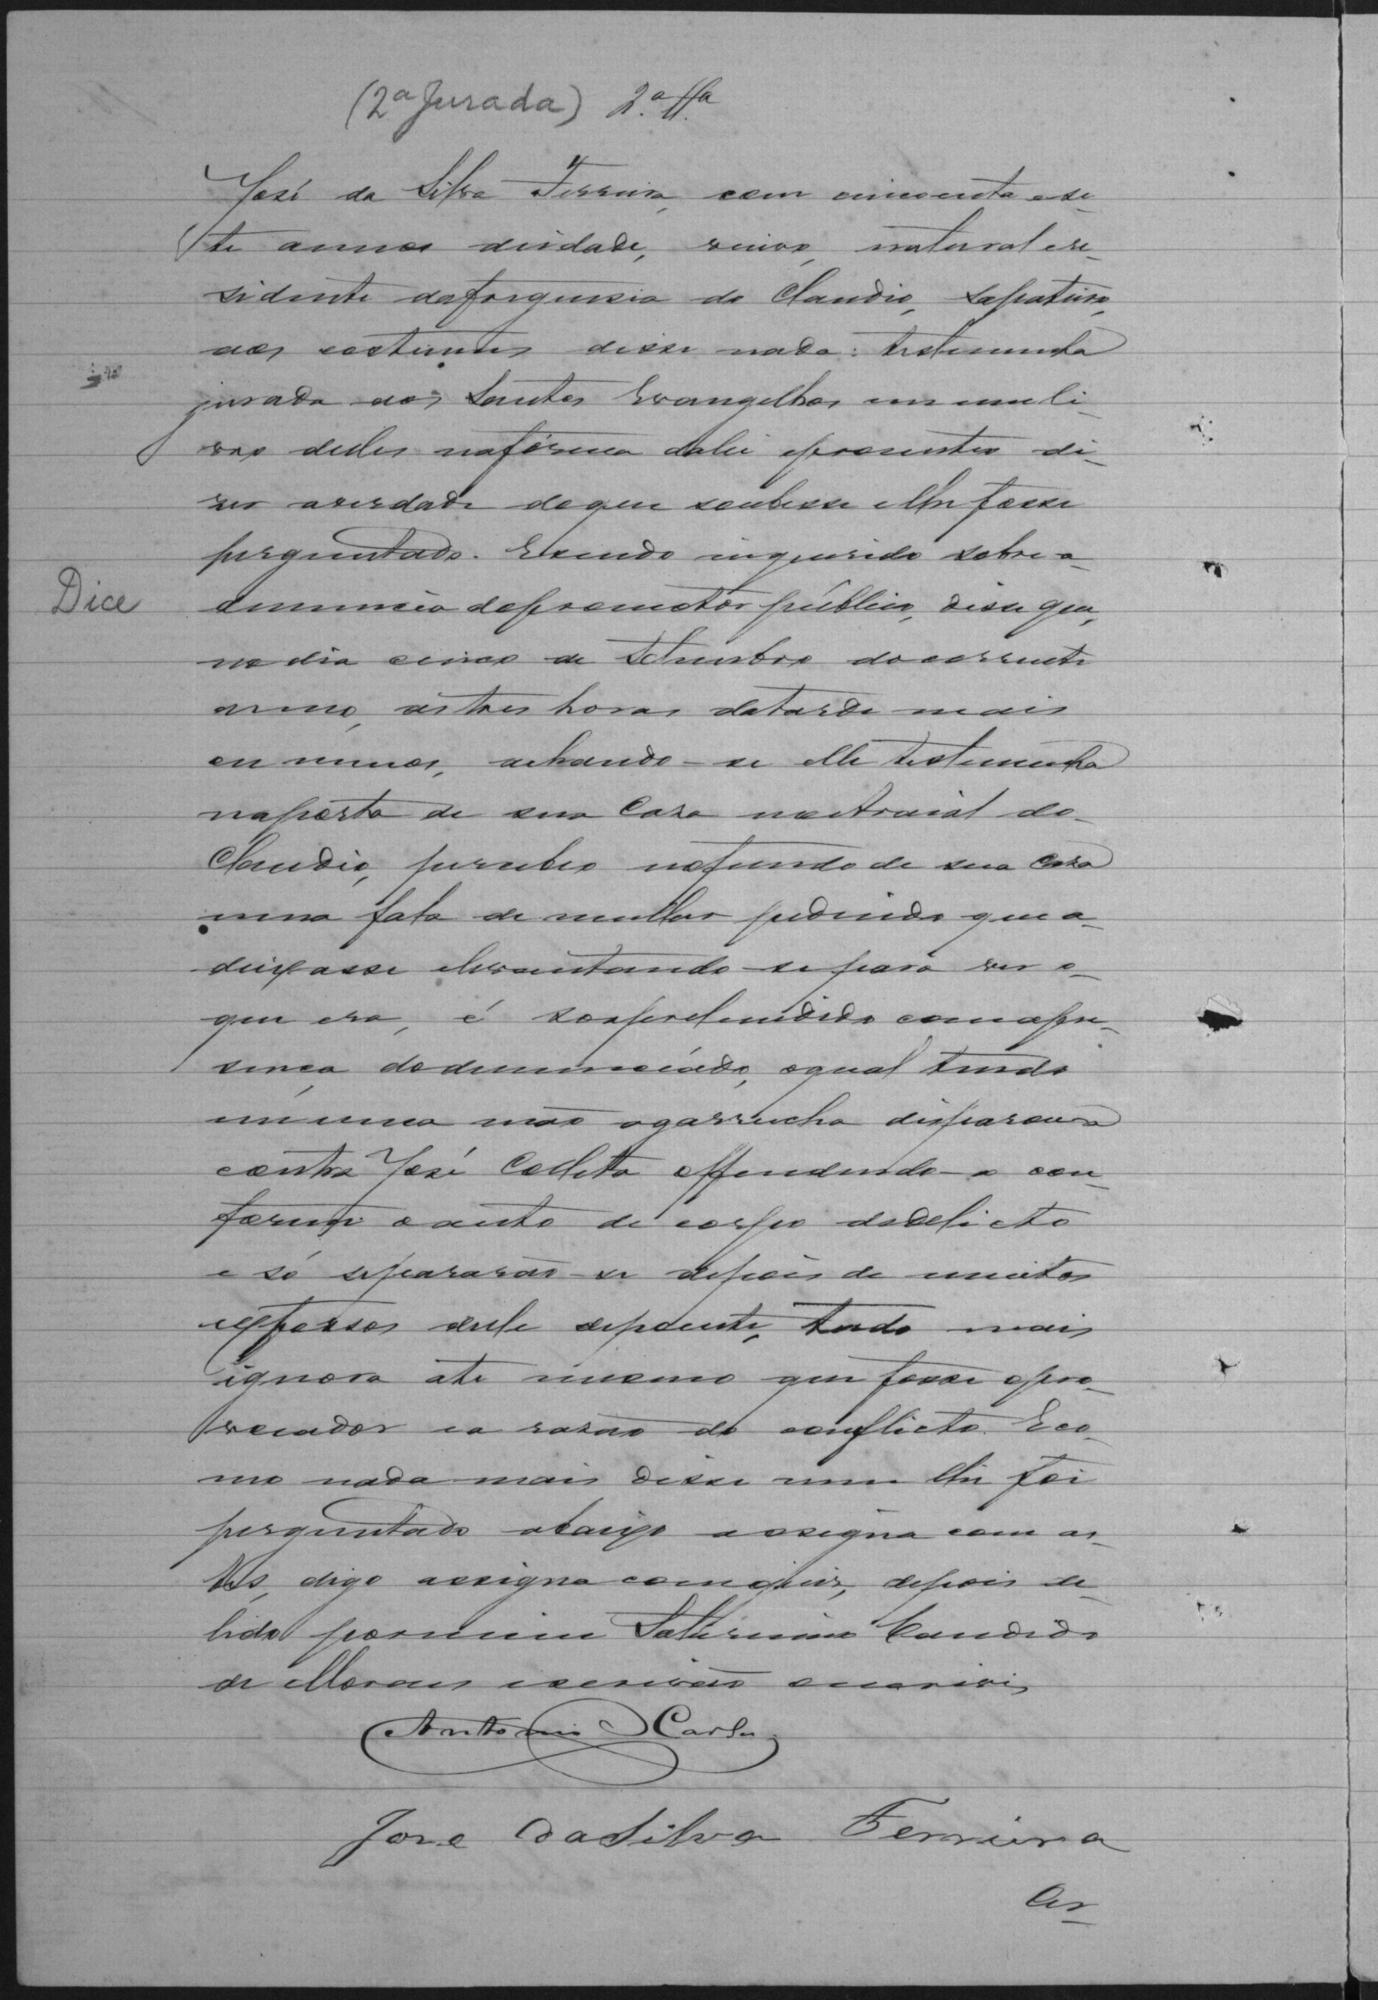 (2ª Jurada) 2.ª tta
José da Silva Ferreira, com cincoenta e se-
te annos deidade, viuvo, natural e re-
sidente dafreguesia do Claudio, sapateiro,
aos costumes disse nada: testemunha
jurada aos Santos Evangelhos em um li-
vro delles nafórma dalei eprometteo di-
zer averdade doque soubesse elhe fosse
perguntado. Esendo inquerido sobre a
Dice
denuncia dopromotor público, disse que,
no dia cinco de Setembro docorrente
anno, ás tres horas datarde mais
ou menos, achando-se elle testemunha
naporta de sua Casa no Arraial do
Claudio, percebeo nofundo de sua Casa
uma fala de mulher pedindo que a-
deixasse elevantando-se para ver o-
que era, é sorprehendido com apre-
sença dodenunciado, oqual tendo
em uma mão agarrucha disparou-a
contra José Colleta offendendo-o con-
forme o auto de corpo dedelicto
e só separarão-se depois de muitos
esforsos delle depoente, tudo mais
ignora até mesmo quem fosse opro-
vocador ea rasão do conflicto. Eco-
mo nada mais disse nem lhe foi
perguntado abaixo assigna com as-
tes, digo assigna com ojuiz, depois de
lido por mim Saturnino Candido
de Moraes escrivão oescrivi
Antonio Carlos
Jose da Silva Ferreira
As-